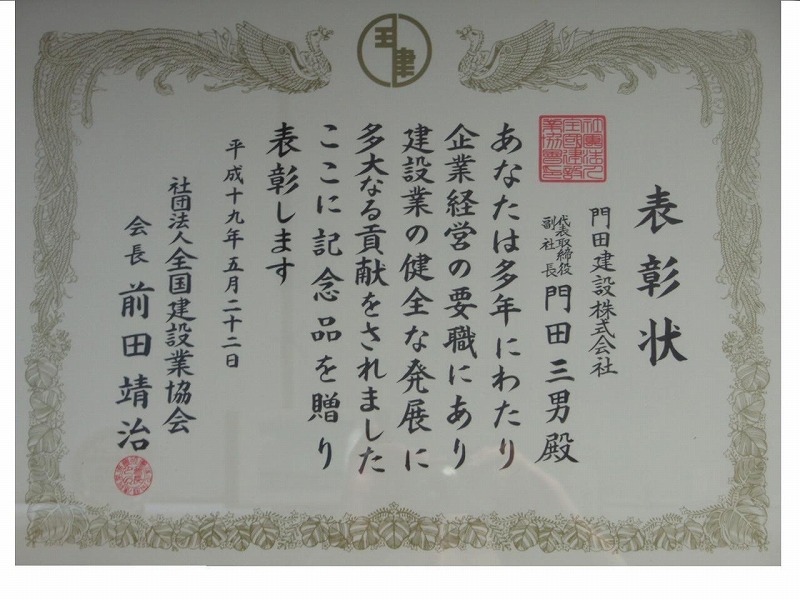 表彰状
門田建設株式会社
代表取締役
副社長
門田三男殿
あなたは多年にわたり
企業経営の要職にあり
建設業の健全な発展に
多大なる貢献をされました
ここに記念品を贈り
表彰します
平成十九年五月二十二日
社団法人全国建設業協会
会長 前田靖治